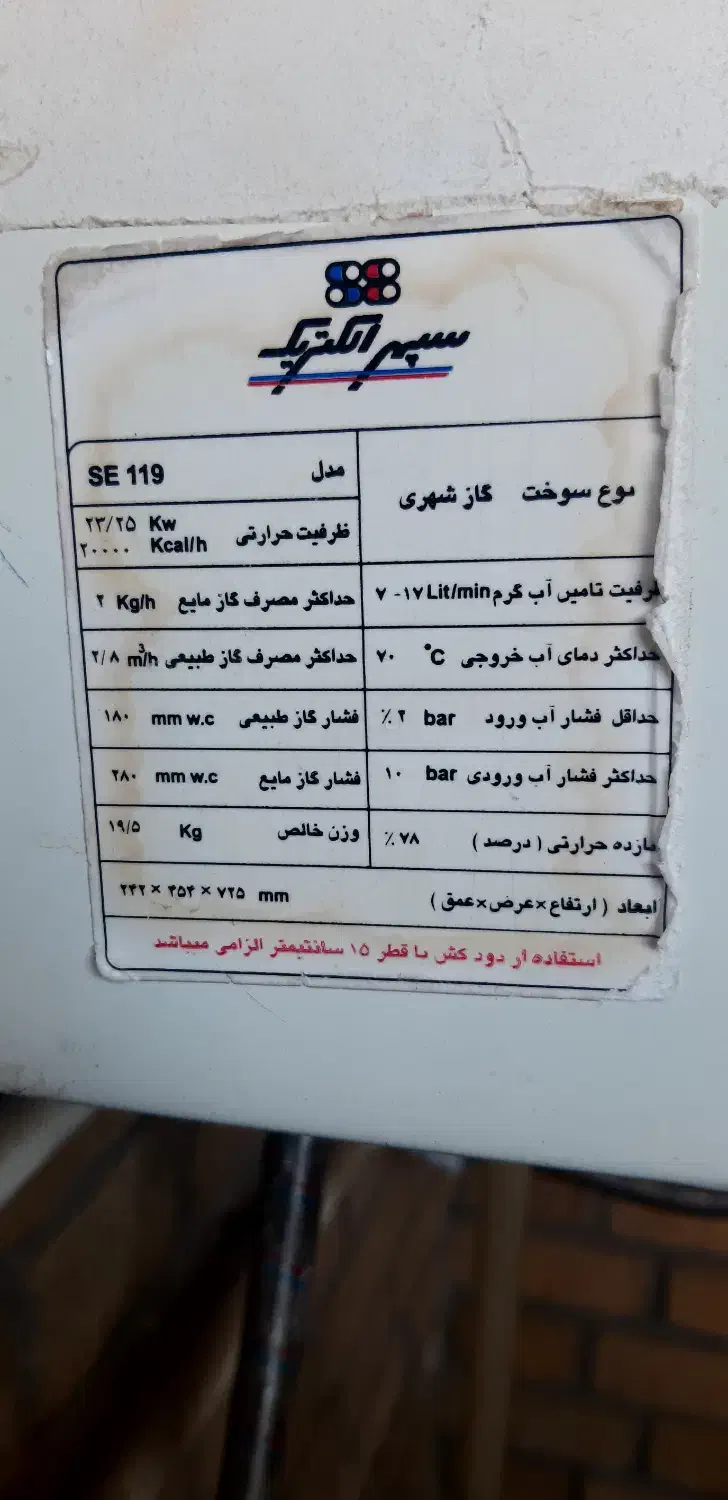 سپهر الکتریک
نوع سوخت گاز شهری
مدل SE 119
ظرفیت حرارتی ۲۳/۲۵ Kw
۲۰۰۰۰ Kcal/h
ظرفیت تامین آب گرم ۷ -۱۷ Lit/min
حداکثر مصرف گاز مایع ۲ Kg/h
حداکثر دمای آب خروجی ۷۰ °C
حداکثر مصرف گاز طبیعی ۲/۸ m³/h
حداقل فشار آب ورود ٪۲ bar
فشار گاز طبیعی ۱۸۰ mm w.c
حداکثر فشار آب ورودی ۱۰ bar
فشار گاز مایع ۲۸۰ mm w.c
بازده حرارتی ( درصد ) ٪۷۸
وزن خالص ۱۹/۵ Kg
ابعاد ( ارتفاع×عرض×عمق ) ۲۴۲ × ۴۵۴ × ۷۲۵ mm
استفاده از دود کش با قطر ۱۵ سانتیمتر الزامی میباشد